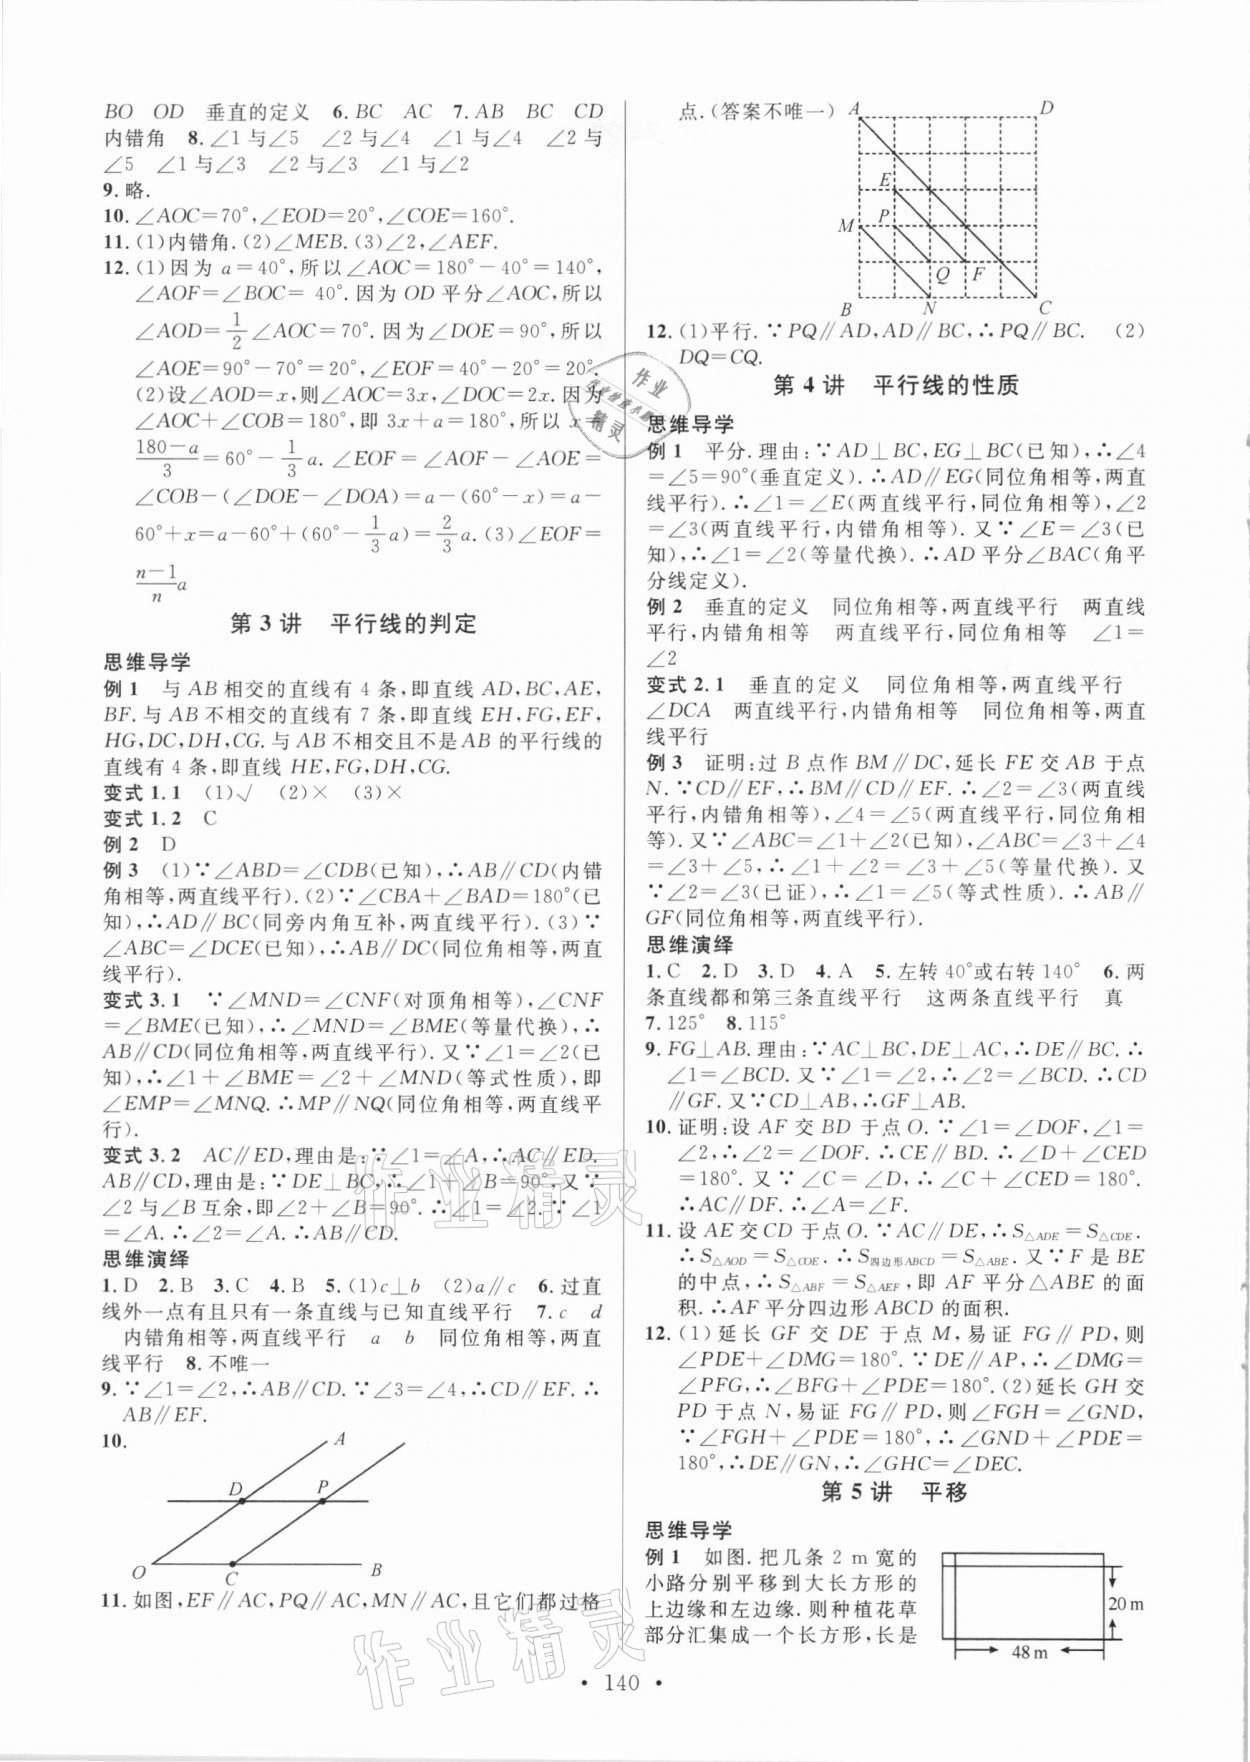 BO　OD　垂直的定义　6. BC　AC　7. AB　BC　CD
内错角　8. ∠1与∠5　∠2与∠4　∠1与∠4　∠2与
∠5　∠1与∠3　∠2与∠3　∠1与∠2
9. 略.
10. ∠AOC=70°,∠EOD=20°,∠COE=160°.
11. (1)内错角.(2)∠MEB.(3)∠2,∠AEF.
12. (1)因为a=40°,所以∠AOC=180°-40°=140°,
∠AOF=∠BOC= 40°.因为OD平分∠AOC,所以
∠AOD=1/2∠AOC=70°.因为∠DOE=90°,所以
∠AOE=90°-70°=20°,∠EOF=40°-20°=20°.
(2)设∠AOD=x,则∠AOC=3x,∠DOC=2x.因为
∠AOC+∠COB=180°,即3x+a=180°,所以x=
(180-a)/3=60°-1/3a.∠EOF=∠AOF-∠AOE=
∠COB-(∠DOE-∠DOA)=a-(60°-x)=a-
60°+x=a-60°+(60°-1/3a)=2/3a.(3)∠EOF=
(n-1)/n a
第3讲　平行线的判定
思维导学
例1　与AB相交的直线有4条,即直线AD,BC,AE,
BF.与AB不相交的直线有7条,即直线EH,FG,EF,
HG,DC,DH,CG.与AB不相交且不是AB的平行线的
直线有4条,即直线HE,FG,DH,CG.
变式1.1　(1)√　(2)×　(3)×
变式1.2　C
例2　D
例3　(1)∵∠ABD=∠CDB(已知),∴AB∥CD(内错
角相等,两直线平行).(2)∵∠CBA+∠BAD=180°(已
知),∴AD∥BC(同旁内角互补,两直线平行).(3)∵
∠ABC=∠DCE(已知),∴AB∥DC(同位角相等,两直
线平行).
变式3.1　∵∠MND=∠CNF(对顶角相等),∠CNF
=∠BME(已知),∴∠MND=∠BME(等量代换),∴
AB∥CD(同位角相等,两直线平行).又∵∠1=∠2(已
知),∴∠1+∠BME=∠2+∠MND(等式性质),即
∠EMP=∠MNQ.∴MP∥NQ(同位角相等,两直线平
行).
变式3.2　AC∥ED,理由是:∵∠1=∠A,∴AC∥ED.
AB∥CD,理由是:∵DE⊥BC,∴∠1+∠B=90°,又∵
∠2与∠B互余,即∠2+∠B=90°.∴∠1=∠2.∵∠1
=∠A.∴∠2=∠A.∴AB∥CD.
思维演绎
1. D　2. B　3. C　4. B　5. (1)c⊥b　(2)a∥c　6. 过直
线外一点有且只有一条直线与已知直线平行　7. c　d
内错角相等,两直线平行　a　b　同位角相等,两直
线平行　8. 不唯一
9. ∵∠1=∠2,∴AB∥CD.∵∠3=∠4,∴CD∥EF.∴
AB∥EF.
10.
A
D
P
O
C
B
11. 如图,EF∥AC,PQ∥AC,MN∥AC,且它们都过格
点.(答案不唯一)
A
D
E
M
P
Q
F
B
N
C
12. (1)平行.∵PQ∥AD,AD∥BC,∴PQ∥BC.　(2)
DQ=CQ.
第4讲　平行线的性质
思维导学
例1　平分.理由:∵AD⊥BC,EG⊥BC(已知),∴∠4
=∠5=90°(垂直定义).∴AD∥EG(同位角相等,两直
线平行).∴∠1=∠E(两直线平行,同位角相等),∠2
=∠3(两直线平行,内错角相等).又∵∠E=∠3(已
知),∴∠1=∠2(等量代换).∴AD平分∠BAC(角平
分线定义).
例2　垂直的定义　同位角相等,两直线平行　两直线
平行,内错角相等　两直线平行,同位角相等　∠1=
∠2
变式2.1　垂直的定义　同位角相等,两直线平行
∠DCA　两直线平行,内错角相等　同位角相等,两直
线平行
例3　证明:过B点作BM∥DC,延长FE交AB于点
N.∵CD∥EF,∴BM∥CD∥EF.∴∠2=∠3(两直线
平行,内错角相等),∠4=∠5(两直线平行,同位角相
等).又∵∠ABC=∠1+∠2(已知),∠ABC=∠3+∠4
=∠3+∠5,∴∠1+∠2=∠3+∠5(等量代换).又
∵∠2=∠3(已证),∴∠1=∠5(等式性质).∴AB∥
GF(同位角相等,两直线平行).
思维演绎
1. C　2. D　3. D　4. A　5. 左转40°或右转140°　6. 两
条直线都和第三条直线平行　这两条直线平行　真
7. 125°　8. 115°
9. FG⊥AB.理由:∵AC⊥BC,DE⊥AC,∴DE∥BC.∴
∠1=∠BCD.又∵∠1=∠2,∴∠2=∠BCD.∴CD
∥GF.又∵CD⊥AB,∴GF⊥AB.
10. 证明:设AF交BD于点O.∵∠1=∠DOF,∠1=
∠2,∴∠2=∠DOF.∴CE∥BD.∴∠D+∠CED
=180°.又∵∠C=∠D,∴∠C+∠CED=180°.
∴AC∥DF.∴∠A=∠F.
11. 设AE交CD于点O.∵AC∥DE,∴S△ADE=S△CDE.
∴S△AOD=S△COE.∴S四边形ABCD=S△ABE.又∵F是BE
的中点,∴S△ABF=S△AEF,即AF平分△ABE的面
积.∴AF平分四边形ABCD的面积.
12. (1)延长GF交DE于点M,易证FG∥PD,则
∠PDE+∠DMG=180°.∵DE∥AP,∴∠DMG=
∠PFG,∴∠BFG+∠PDE=180°.(2)延长GH交
PD于点N,易证FG∥PD,则∠FGH=∠GND,
∵∠FGH+∠PDE=180°,∴∠GND+∠PDE=
180°,∴DE∥GN,∴∠GHC=∠DEC.
第5讲　平移
思维导学
例1　如图.把几条2 m宽的
小路分别平移到大长方形的
上边缘和左边缘.则种植花草
部分汇集成一个长方形,长是
20 m
48 m
• 140 •
作业精灵
作业精灵
作业
精灵